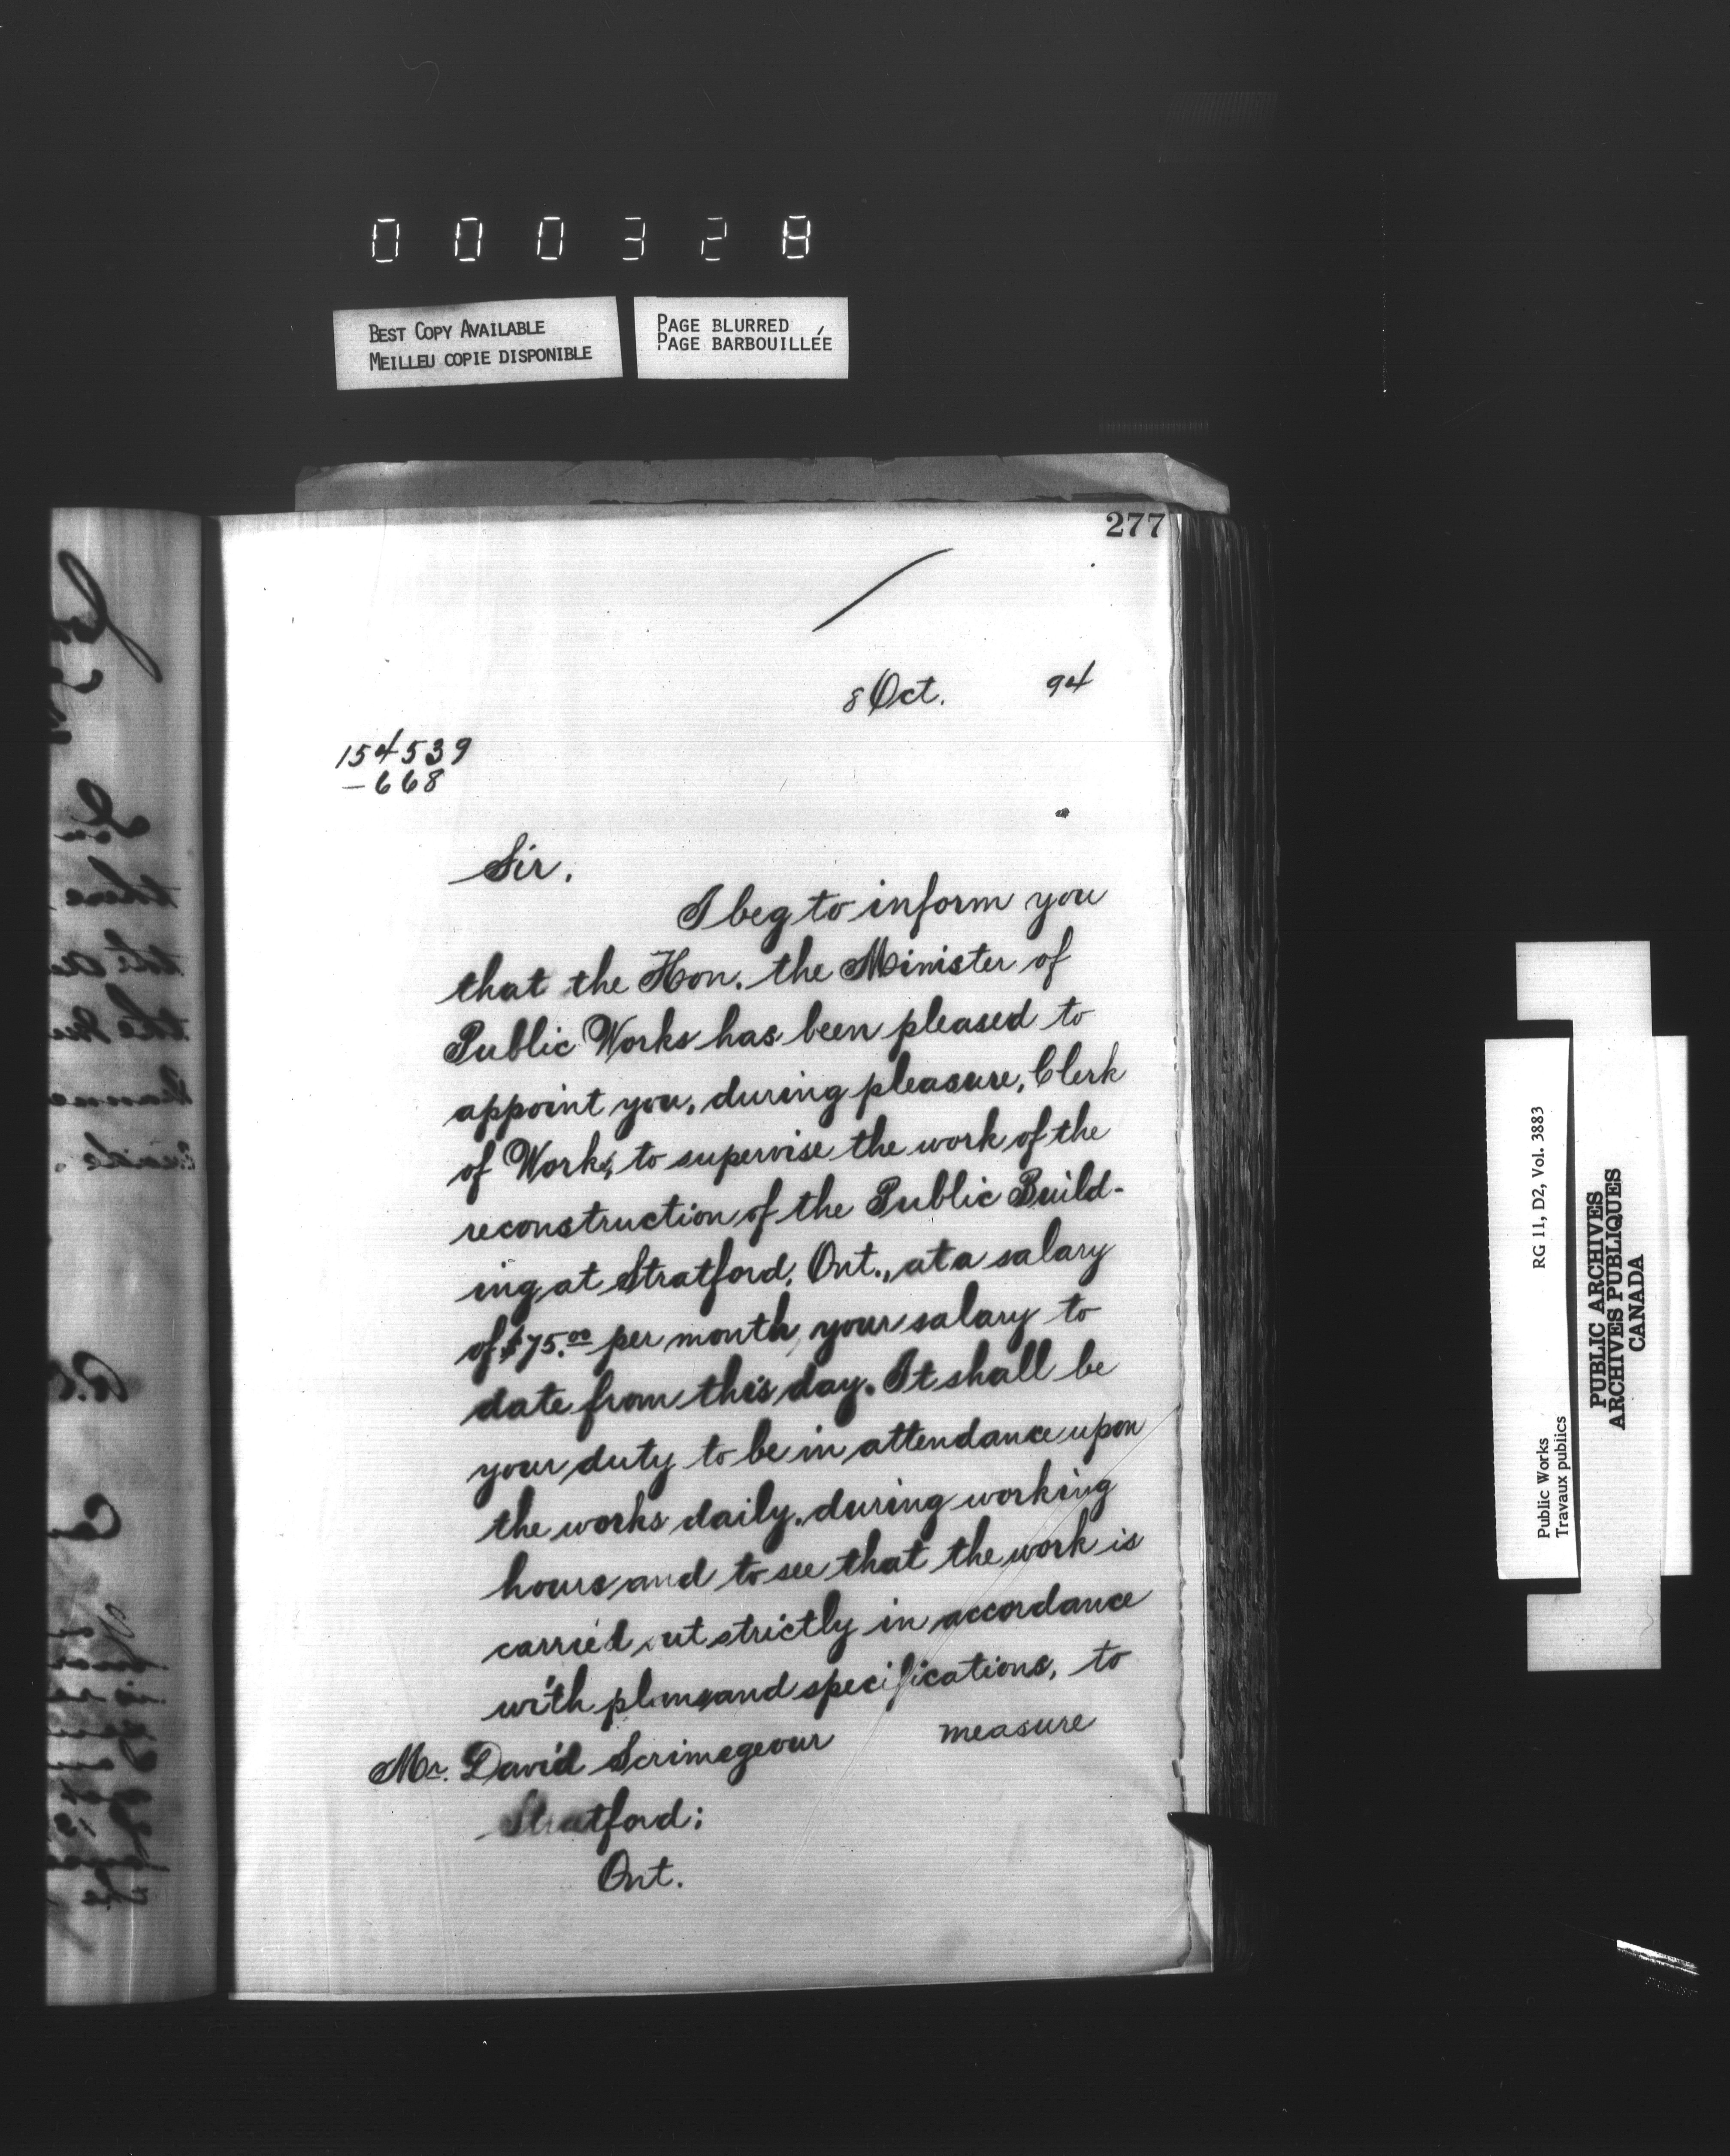 000328
BEST COPY AVAILABLE
MEILLEU COPIE DISPONIBLE
PAGE BLURRED
PAGE BARBOUILLÉE
277
8 Oct. 94
154539
-668
Sir,
I beg to inform you
that the Hon. the Minister of
Public Works has been pleased to
appoint you, during pleasure, Clerk
of Works, to supervise the work of the
reconstruction of the Public Build-
ing at Stratford, Ont., at a salary
of $75.00 per month, your salary to
date from this day. It shall be
your duty to be in attendance upon
the works daily, during working
hours and to see that the work is
carried out strictly in accordance
with plans and specifications, to
measure
Mr. David Scrimegeour
Stratford;
Ont.
RG 11, D2, Vol. 3883
Public Works
Travaux publics
PUBLIC ARCHIVES
ARCHIVES PUBLIQUES
CANADA